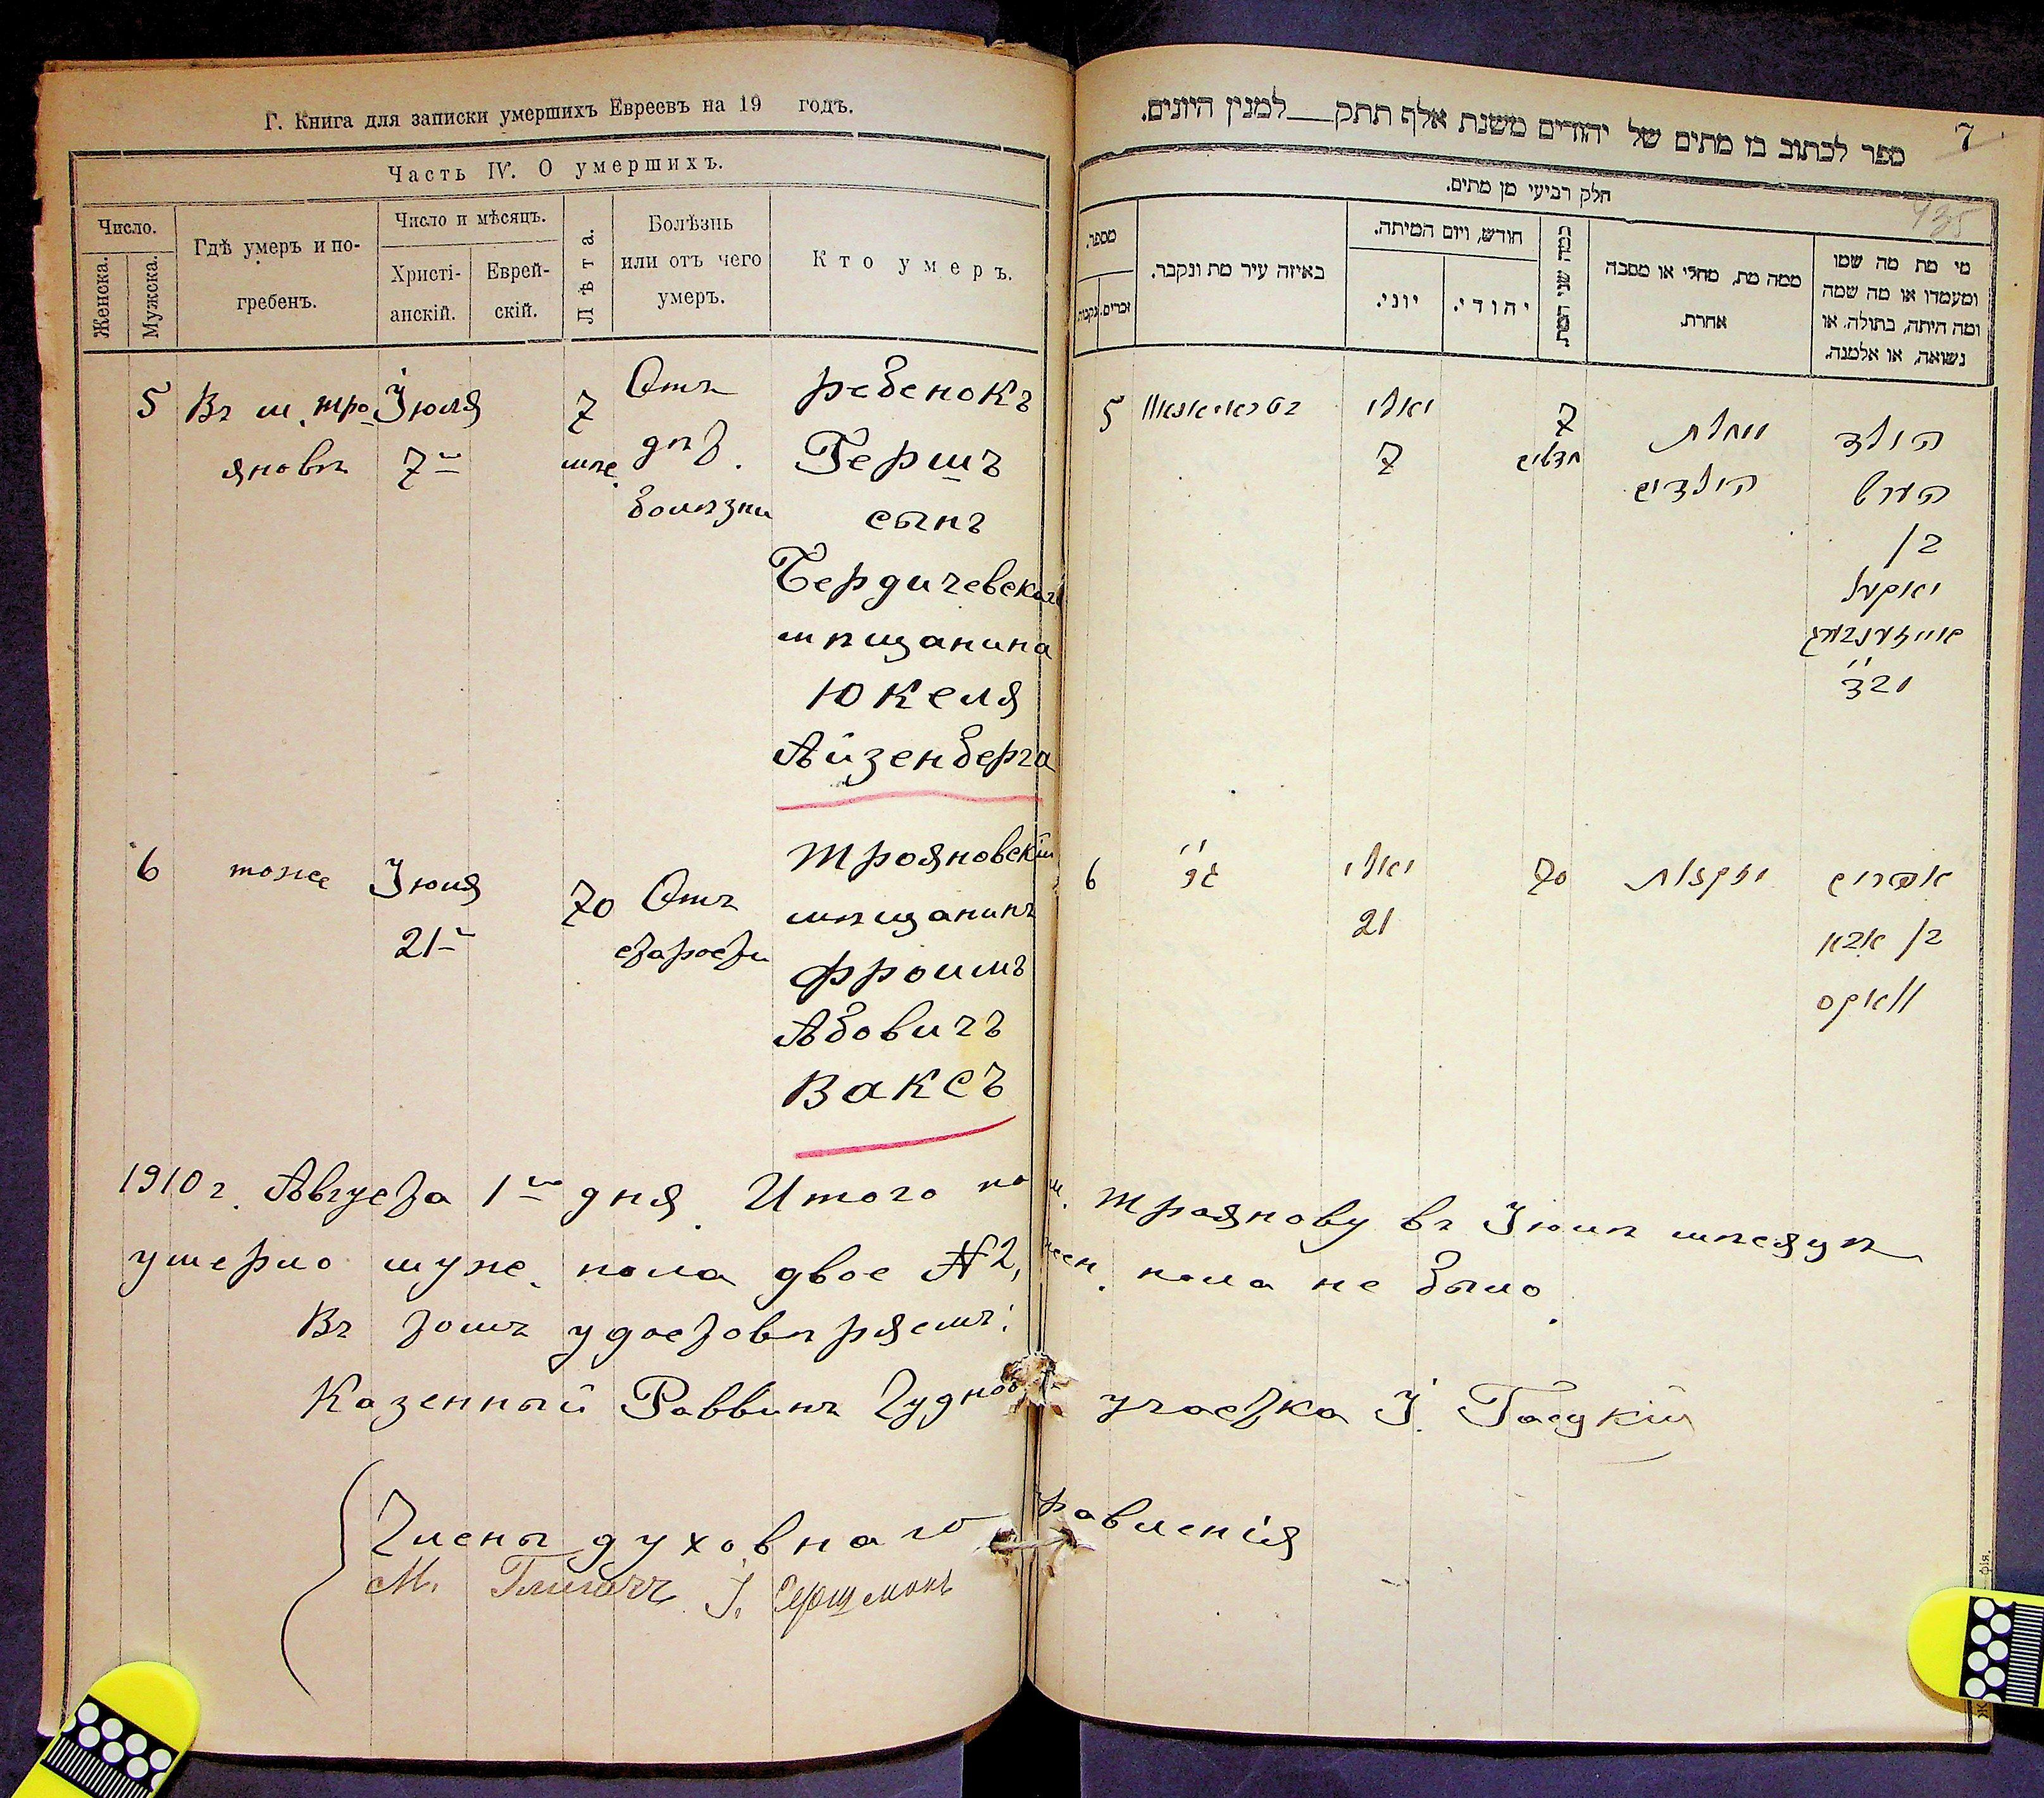 Г. Книга для записки умершихъ Евреевъ на 19 годъ.
Часть IV. О умершихъ.
Число.
Женска.
Мужска.
Гдѣ умеръ и по-
гребенъ.
Число и мѣсяцъ.
Христі-
анскій.
Еврей-
скій.
Лѣта.
Болѣзнь
или отъ чего
умеръ.
Кто умеръ.
5 Въ м. Тро- Іюля 7 Отъ ребенокъ
яновѣ 7го мѣс. дѣт. Гершъ
болѣзни сынъ
Бердичевскаго
мѣщанина
Юкеля
Айзенберга
6 тоже Іюля 70 Отъ Трояновскій
21го старости мѣщанинъ
Фроимъ
Абовичъ
Ваксъ
1910 г. Августа 1го дня. Итого по м. Троянову въ Іюлѣ мѣсяцѣ
умерло муж. пола двое №2, жен. пола не было.
Въ томъ удостовѣряемъ:
Казенный Раввинъ Чуднов. участка І.
Члены духовнаго правленія
М. І. Герщманъ
7
435
ספר לכתוב בו מתים של יהודים משנת אלף תתק__למנין היונים.
חלק רביעי מן מתים.
מספר.
זכרים.
נקבות
באיזה עיר מת ונקבר.
חודש, ויום המיתה.
יוני.
יהודי.
כמה שני המת
ממה מת, מחלי או מסבה
אחרת.
מי מת מה שמו
ומעמדו או מה שמה
ומה היתה, בתולה, או
נשואה, או אלמנה.
5 יואלי 7 מחלת הילד
7 חדשים הילדים הערש
בן
יאקעל
אייזענבערג
6 יואלי 70 מזקנות אפרים
21 בן אבא
וואקס